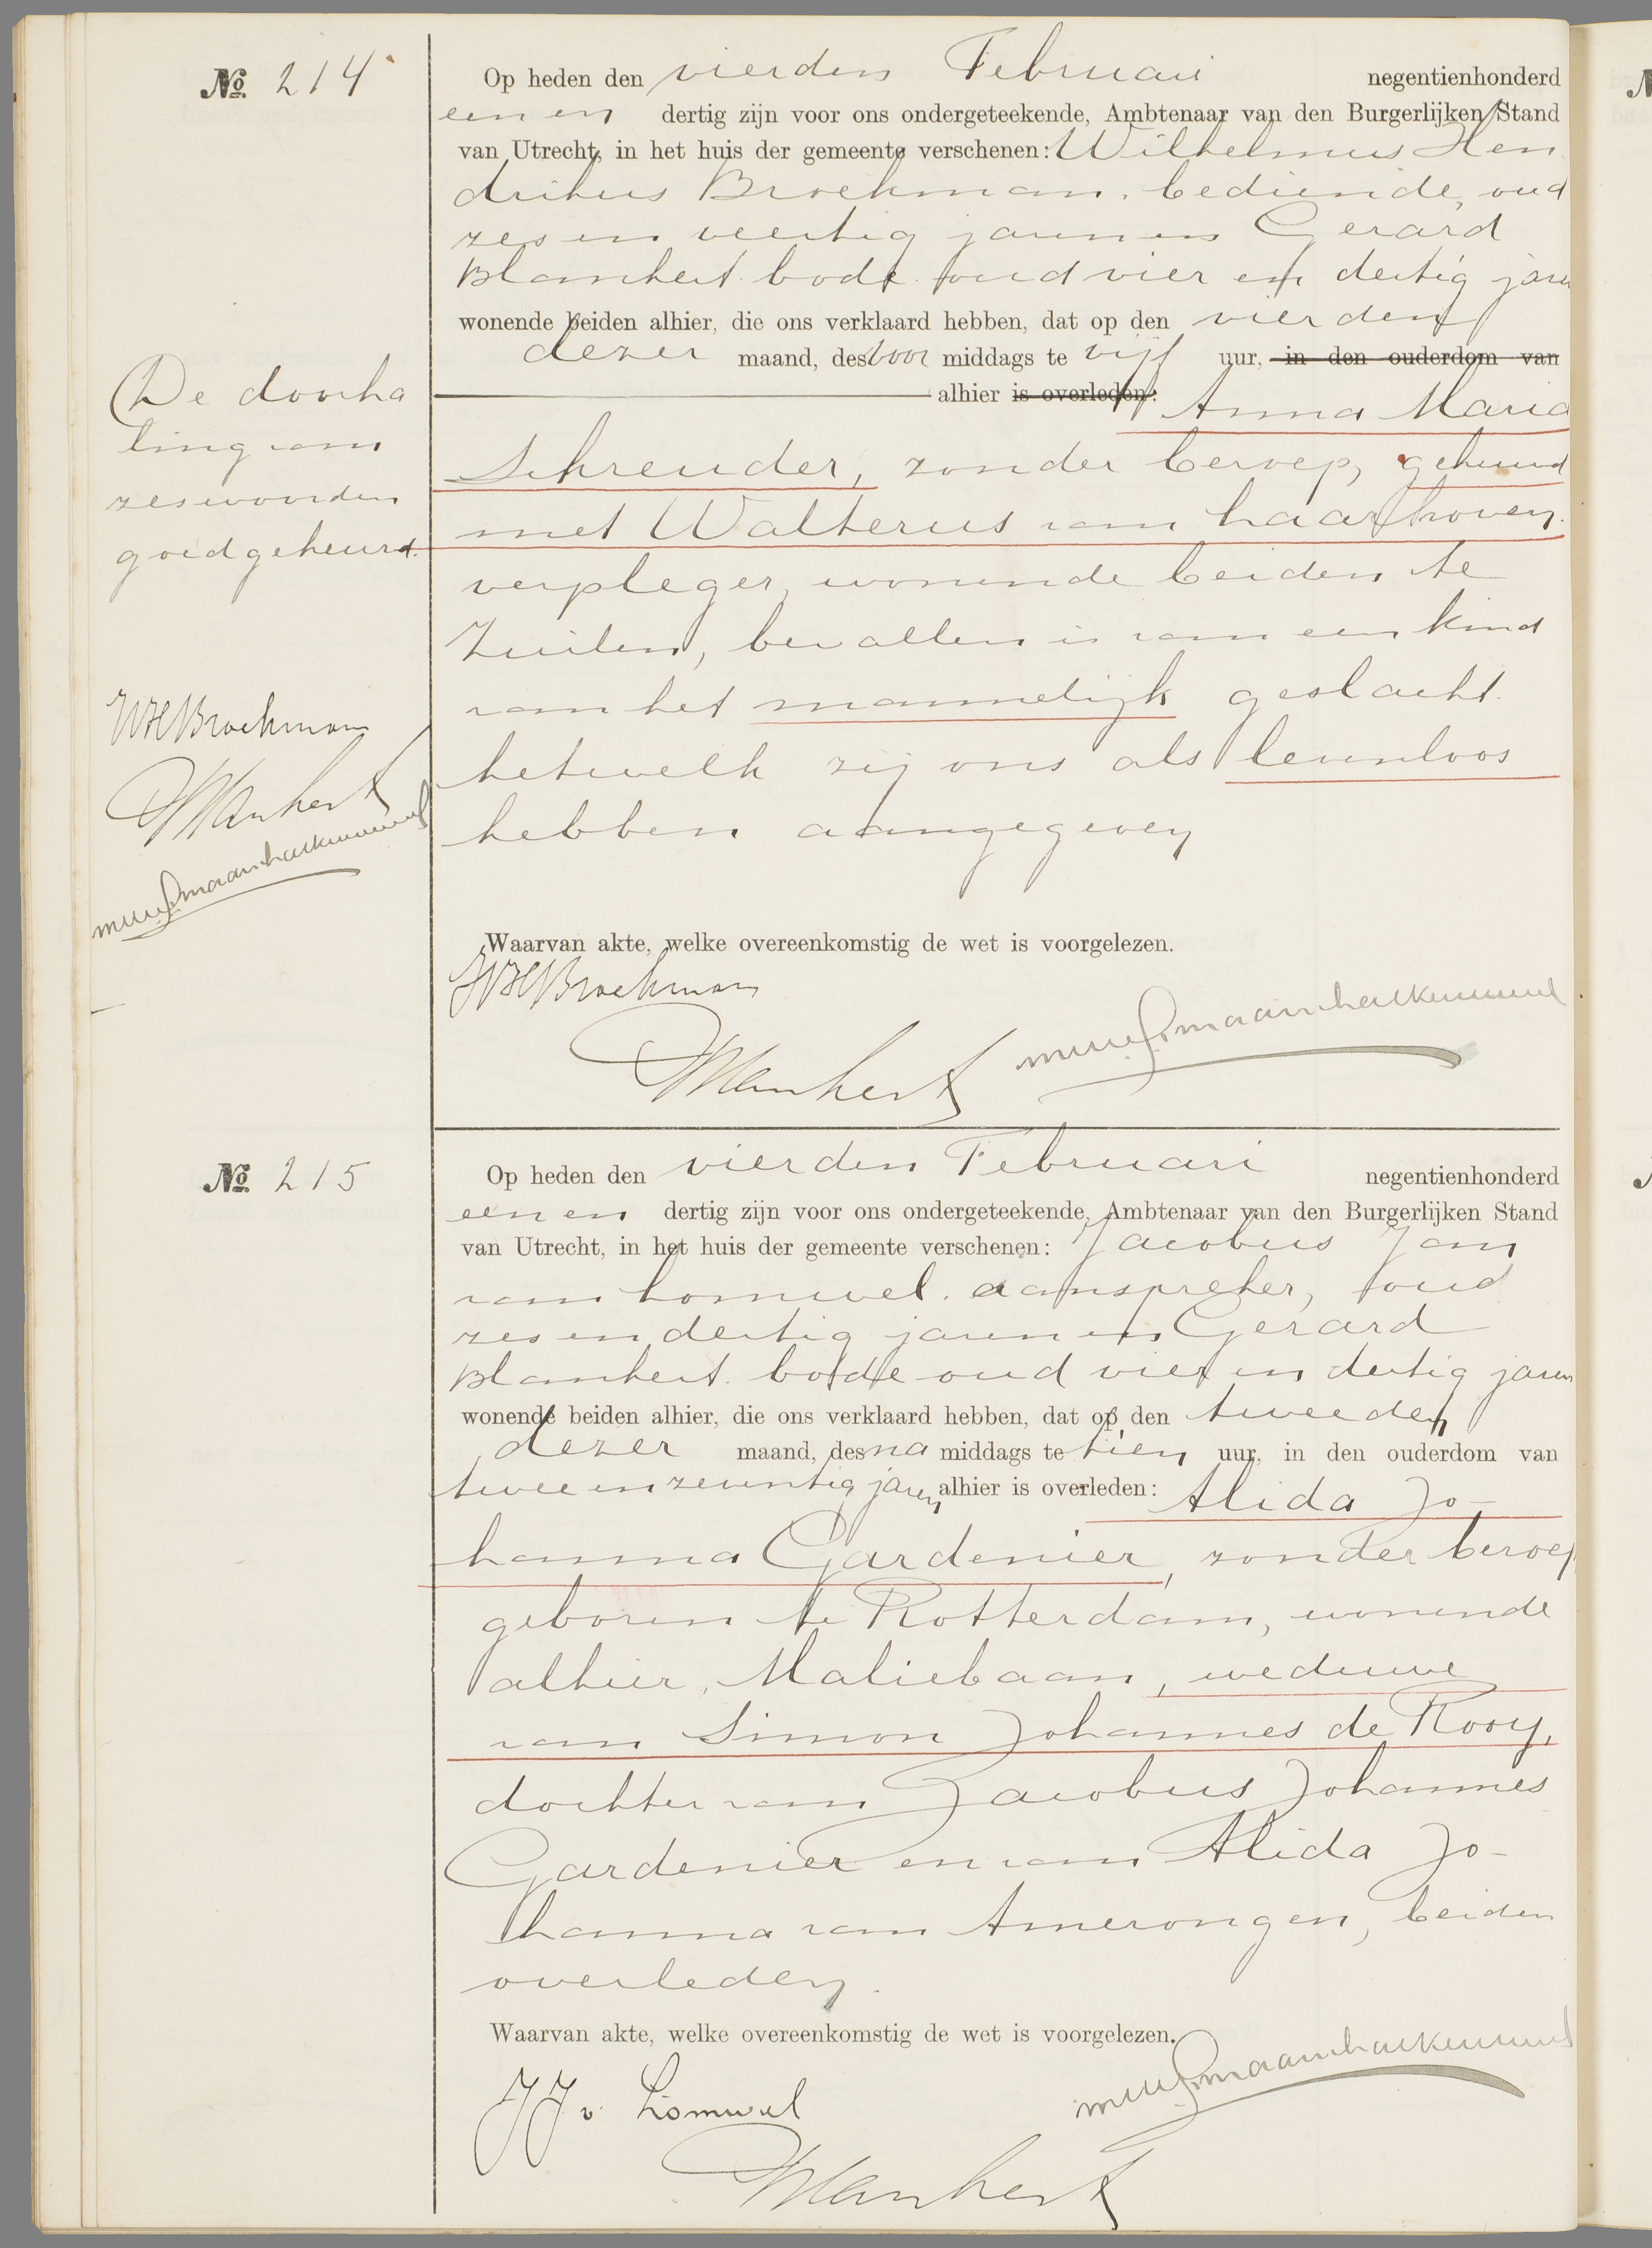 No 214
Op heden den vierden Februari negentienhonderd
een en dertig zijn voor ons ondergeteekende, Ambtenaar van den Burgerlijken Stand
van Utrecht, in het huis der gemeente verschenen: Wilhelmus Hen
drikus Broekman, bediende, oud
zes en veertig jaren en Gerard
Blankert bode oud vier en dertig jaren
wonende beiden alhier, die ons verklaard hebben, dat op den vierden
dezer maand, des voor middags te vijf uur, in den ouderdom van
alhier is overleden: Anna Maria
Schreuder, zonder beroep, gehuwd
met Walterus van
verpleger, wonende beiden te
Zuilen, bevallen is van een kind
van het mannelijk geslacht
hetwelk zij ons als levenloos
hebben aangegeven
Waarvan akte, welke overeenkomstig de wet is voorgelezen.
WHBroekman
GBlankert
De doorha
ling van
zes woorden
goedgekeurd.
WHBroekman
GBlankert
No 215
Op heden den vierden Februari negentienhonderd
een en dertig zijn voor ons ondergeteekende, Ambtenaar van den Burgerlijken Stand
van Utrecht, in het huis der gemeente verschenen: Jacobus Jan
van Lomwel, aanspreker, oud
zes en dertig jaren en Gerard
Blankert bode oud vier en dertig jaren
wonende beiden alhier, die ons verklaard hebben, dat op den tweeden
dezer maand, des na middags te tien uur, in den ouderdom van
twee en zeventig jaren alhier is overleden: Alida Jo-
hanna Gardenier, zonder beroep
geboren te Rotterdam, wonende
alhier, Maliebaan, weduwe
van Simon Johannes de Rooy,
dochter van Jacobus Johannes
Gardenier en van Alida Jo-
hanna van Amerongen, beiden
overleden.
Waarvan akte, welke overeenkomstig de wet is voorgelezen.
JJ v. Lomwel
GBlankert